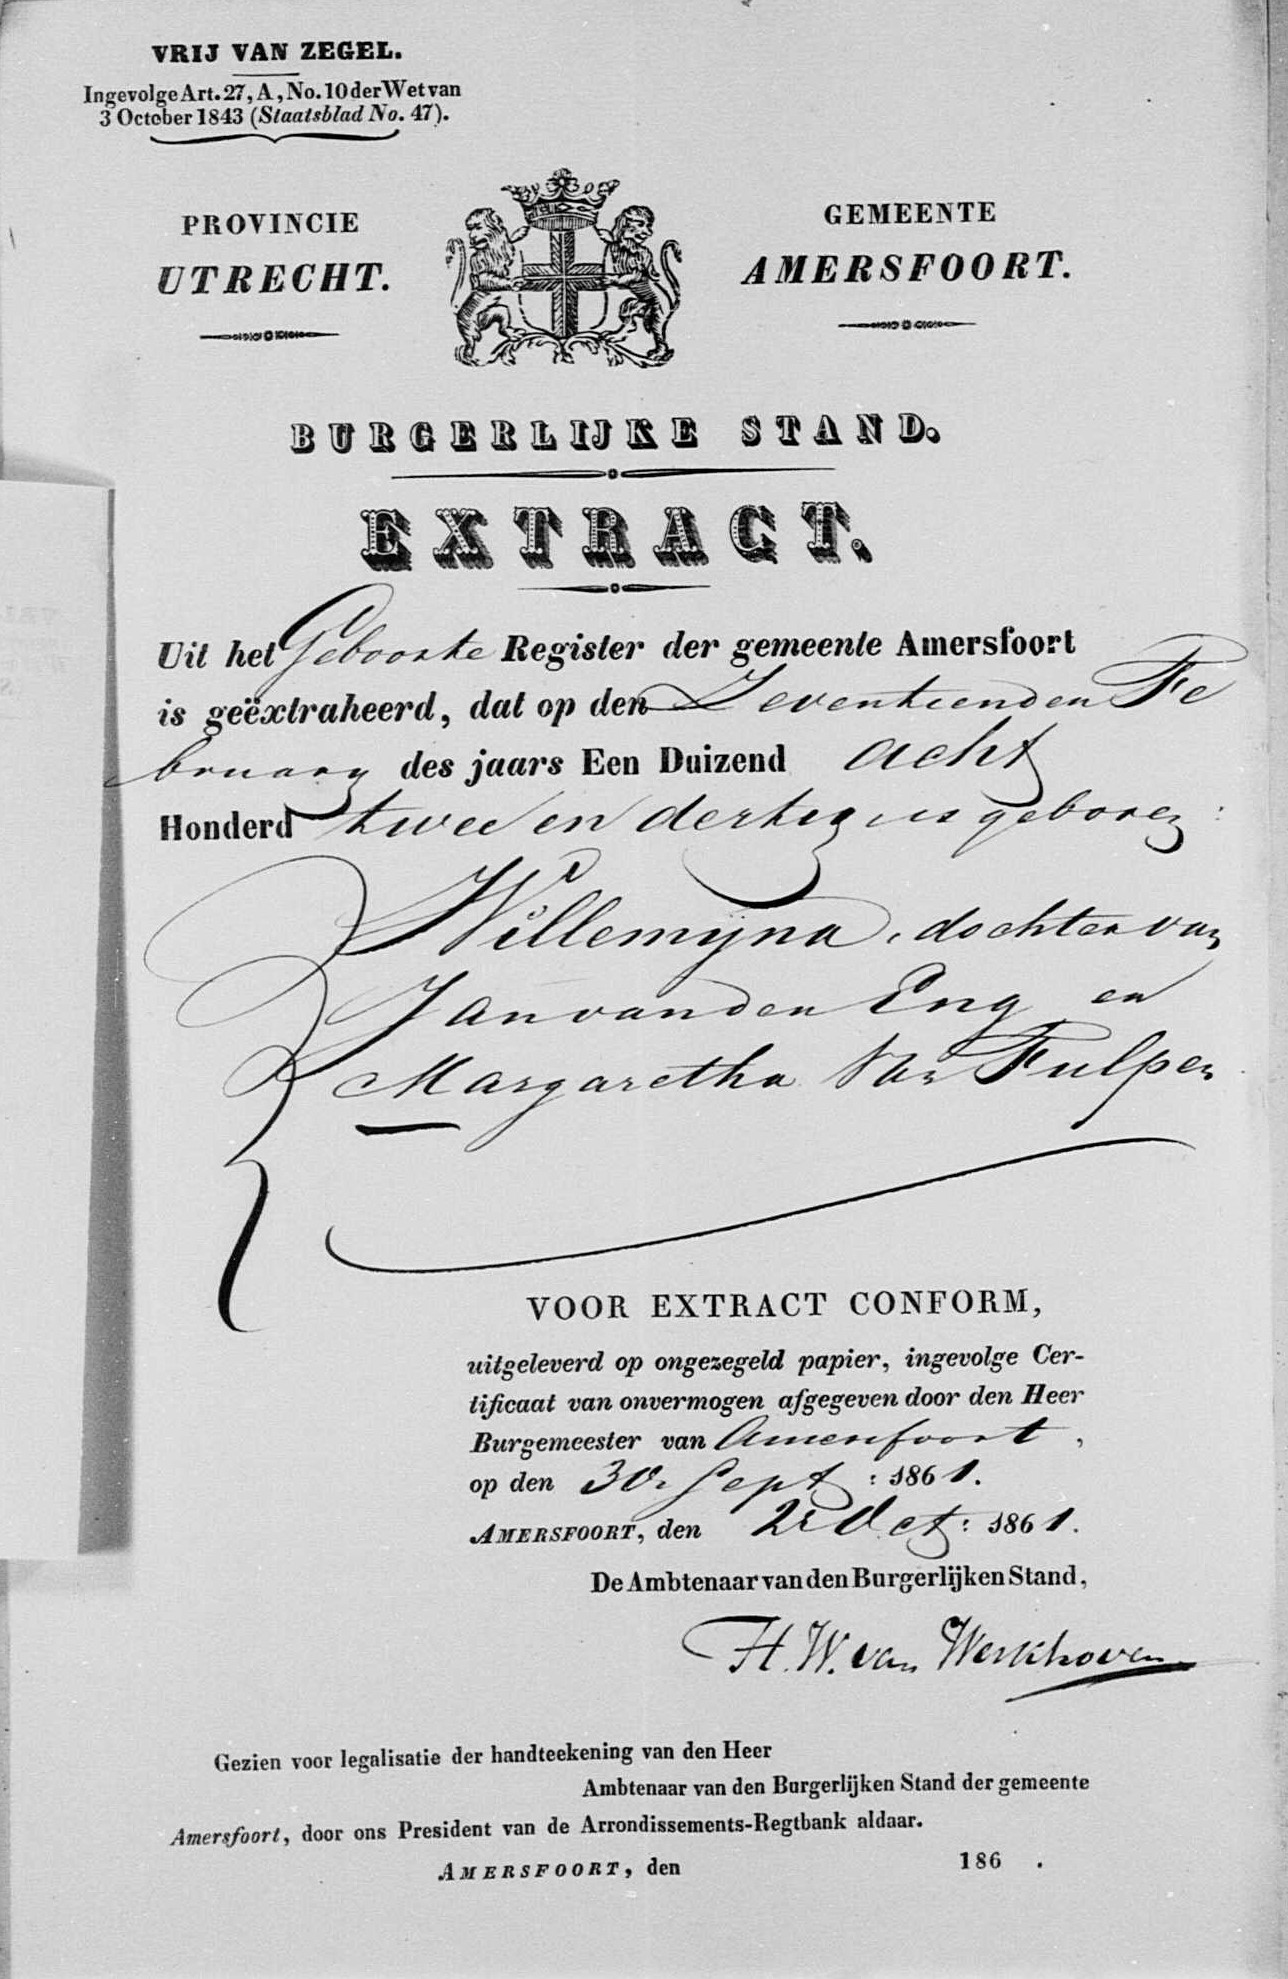 VRIJ VAN ZEGEL.
Ingevolge Art. 27, A, No. 10 der Wet van
3 October 1843 (Staatsblad No. 47).
PROVINCIE
UTRECHT.
GEMEENTE
AMERSFOORT.
BURGERLIJKE STAND.
EXTRACT.
Uit het Geboorte Register der gemeente Amersfoort
is geëxtraheerd, dat op den Zeventienden Fe
bruary des jaars Een Duizend acht
Honderd twee en dertig is geboren:
Willemijna, dochter van
Jan van den Eng en
Margaretha Van Fulpen
VOOR EXTRACT CONFORM,
uitgeleverd op ongezegeld papier, ingevolge Cer-
tificaat van onvermogen afgegeven door den Heer
Burgemeester van Amersfoort,
op den 30 Sept: 1861.
AMERSFOORT, den 2e Oct: 1861.
De Ambtenaar van den Burgerlijken Stand,
H. W. van Werkhoven
Gezien voor legalisatie der handteekening van den Heer
Ambtenaar van den Burgerlijken Stand der gemeente
Amersfoort, door ons President van de Arrondissements-Regtbank aldaar.
AMERSFOORT, den 186 .